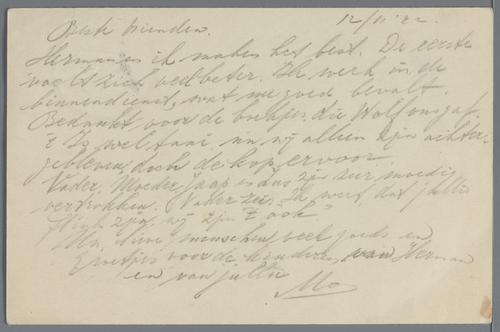 Beste vrienden. 12/11 '42
Herman en ik maken het best. De eerste
voelt zich veel beter. Ik werk in de
binnendienst, wat me goed bevalt.
Bedankt voor de boekjes, die Wolf ons gaf.
't Is wel taai nu wij alleen zijn achter-
gebleven, doch de kop ervoor.
Vader, Moeder, Jaap en zijn zeer moedig
vertrokken. Vader zei: Ik weet, dat jullie
flink zijn, wij zijn 't ook"
Nu, lieve menschen veel goeds en
Groetjes voor de kinderen van Herman
en van jullie
Mo